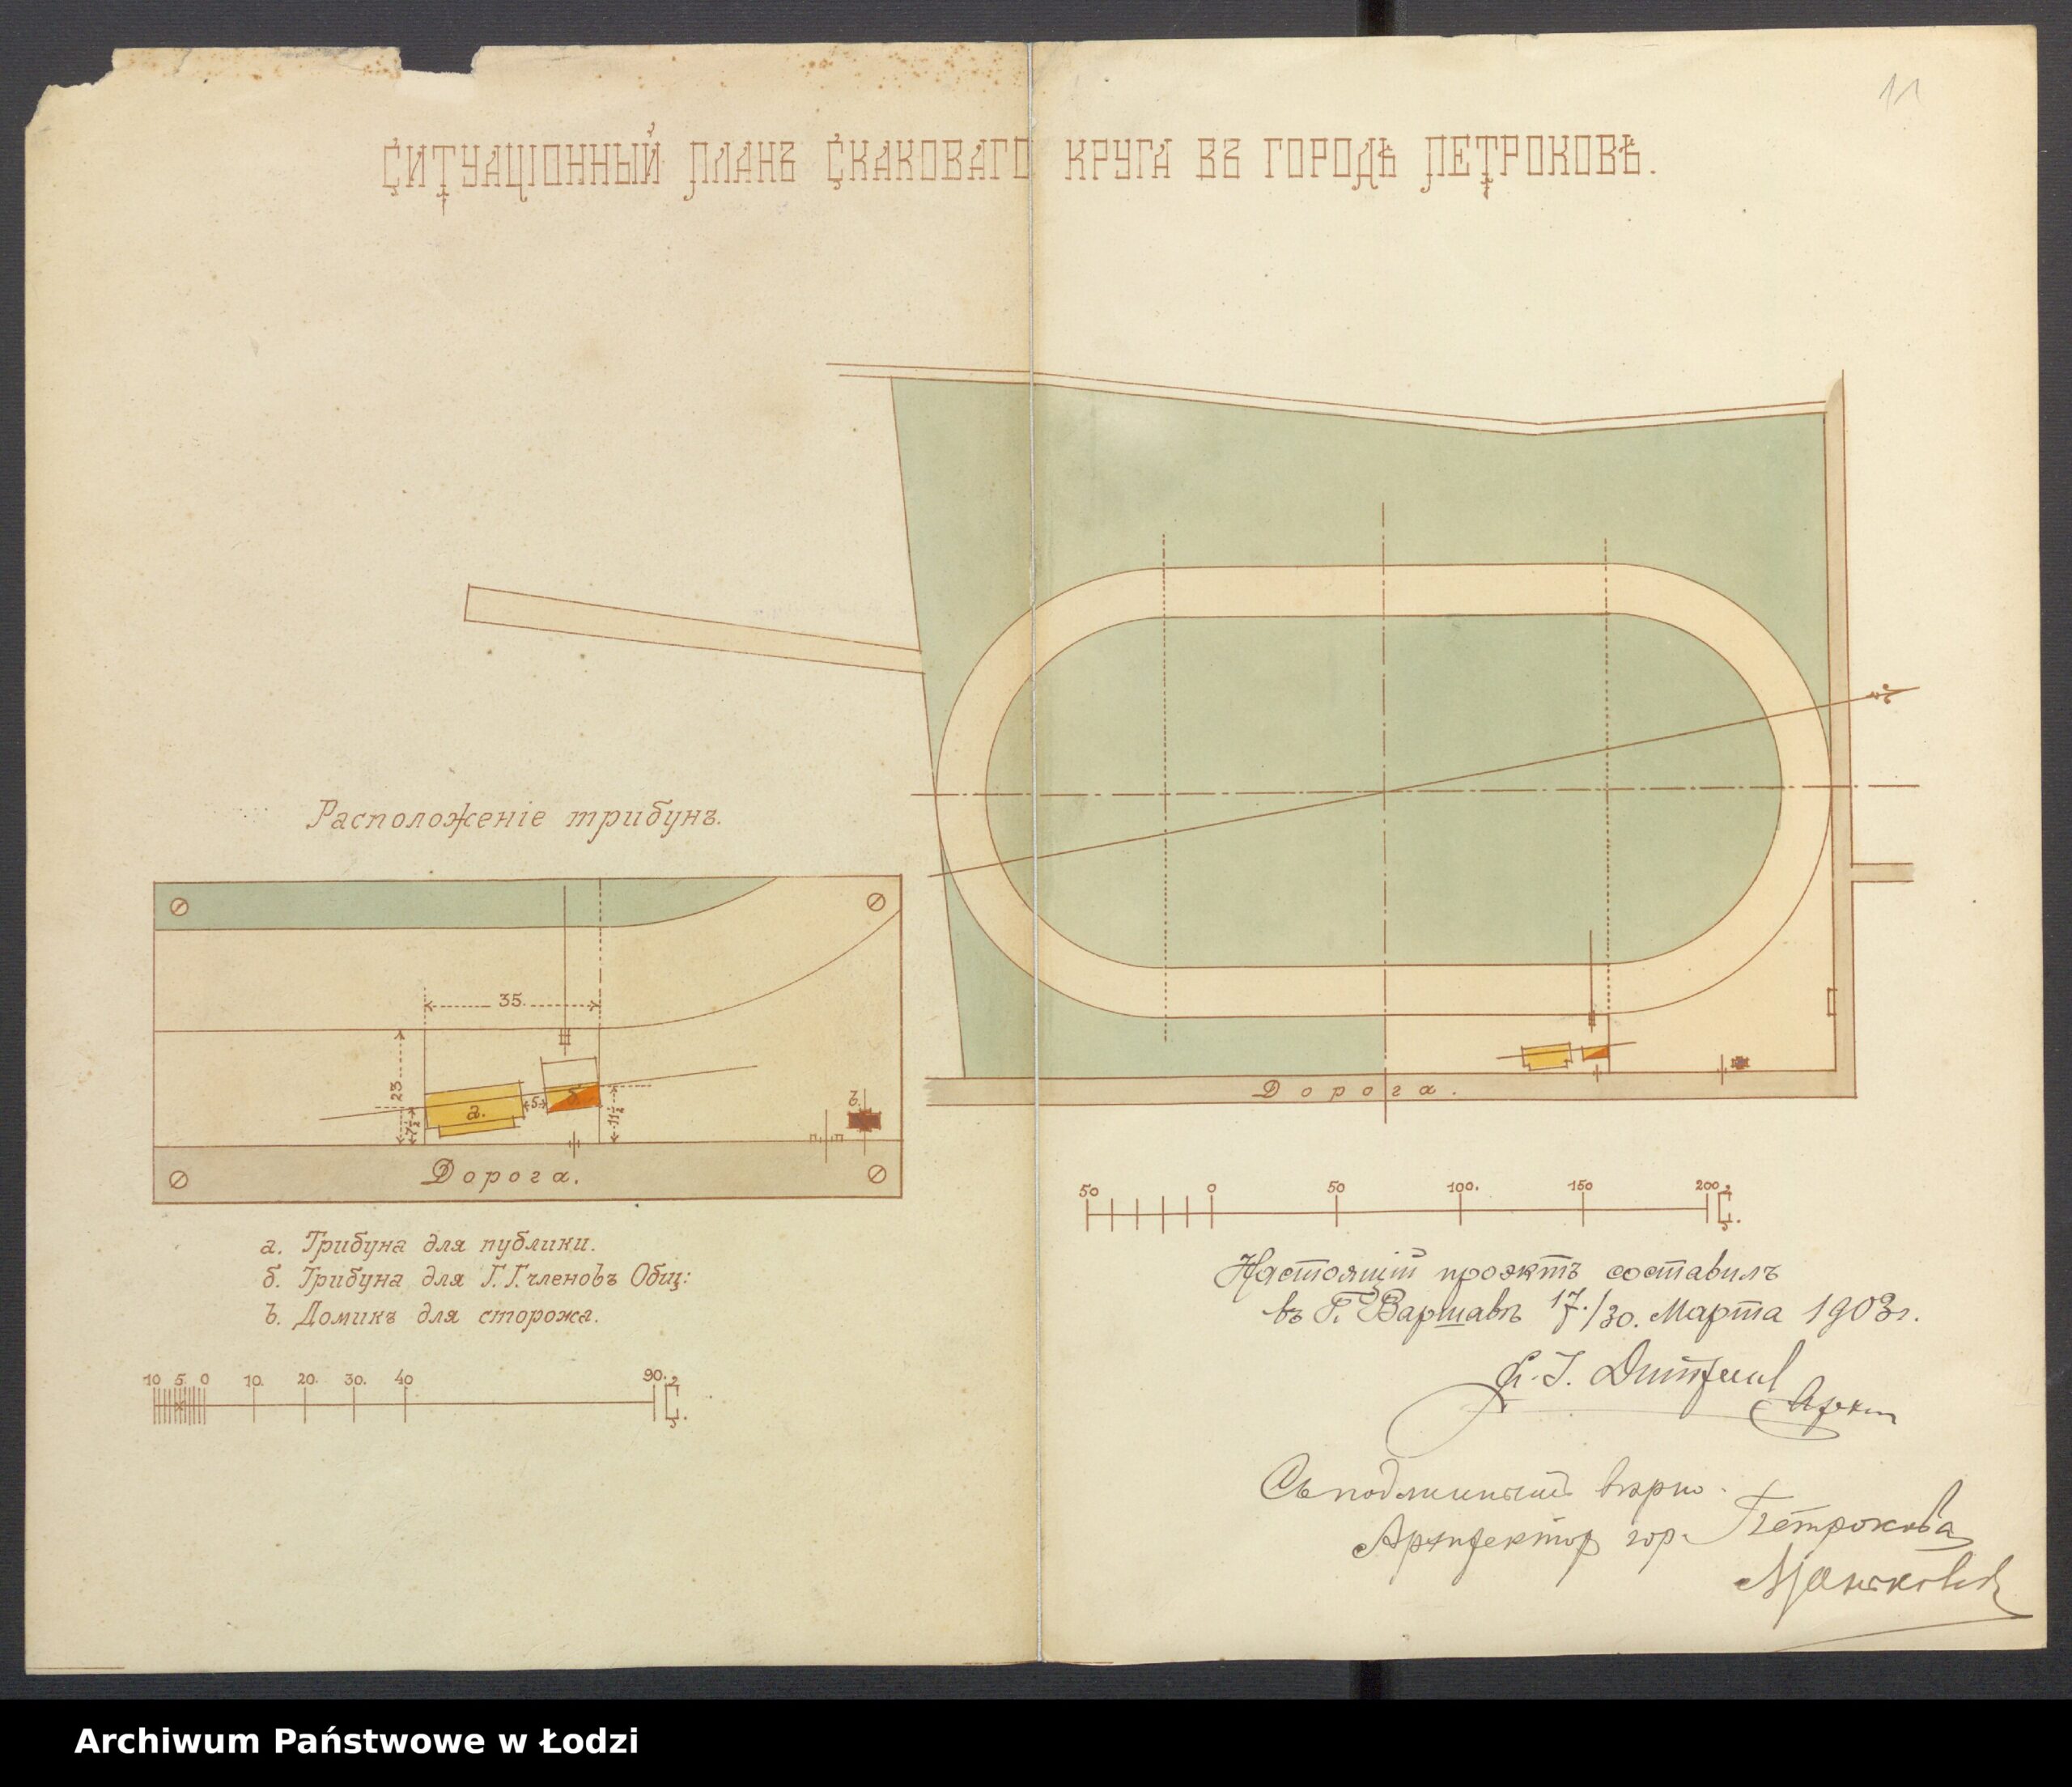 11
СИТУАЦІОННЫЙ ПЛАНЪ СКАКОВАГО КРУГА ВЪ ГОРОДѢ ПЕТРОКОВѢ.
Расположеніе трибунъ.
35.
23
7½
а.
5
б.
11½
в.
Дорога.
Дорога.
а. Трибуна для публики.
б. Трибуна для Г.Г. членовъ Общ:
в. Домикъ для сторожа.
10 5. 0 10. 20. 30. 40 90. С.
50 0 50 100. 150 200 С.
Настоящій проэктъ составилъ
въ Г. Варшавѣ 17./30. Марта 1903г.
Архит
Съ подлиннымъ вѣрно.
Архитектор гор. Петрокова
Archiwum Państwowe w Łodzi